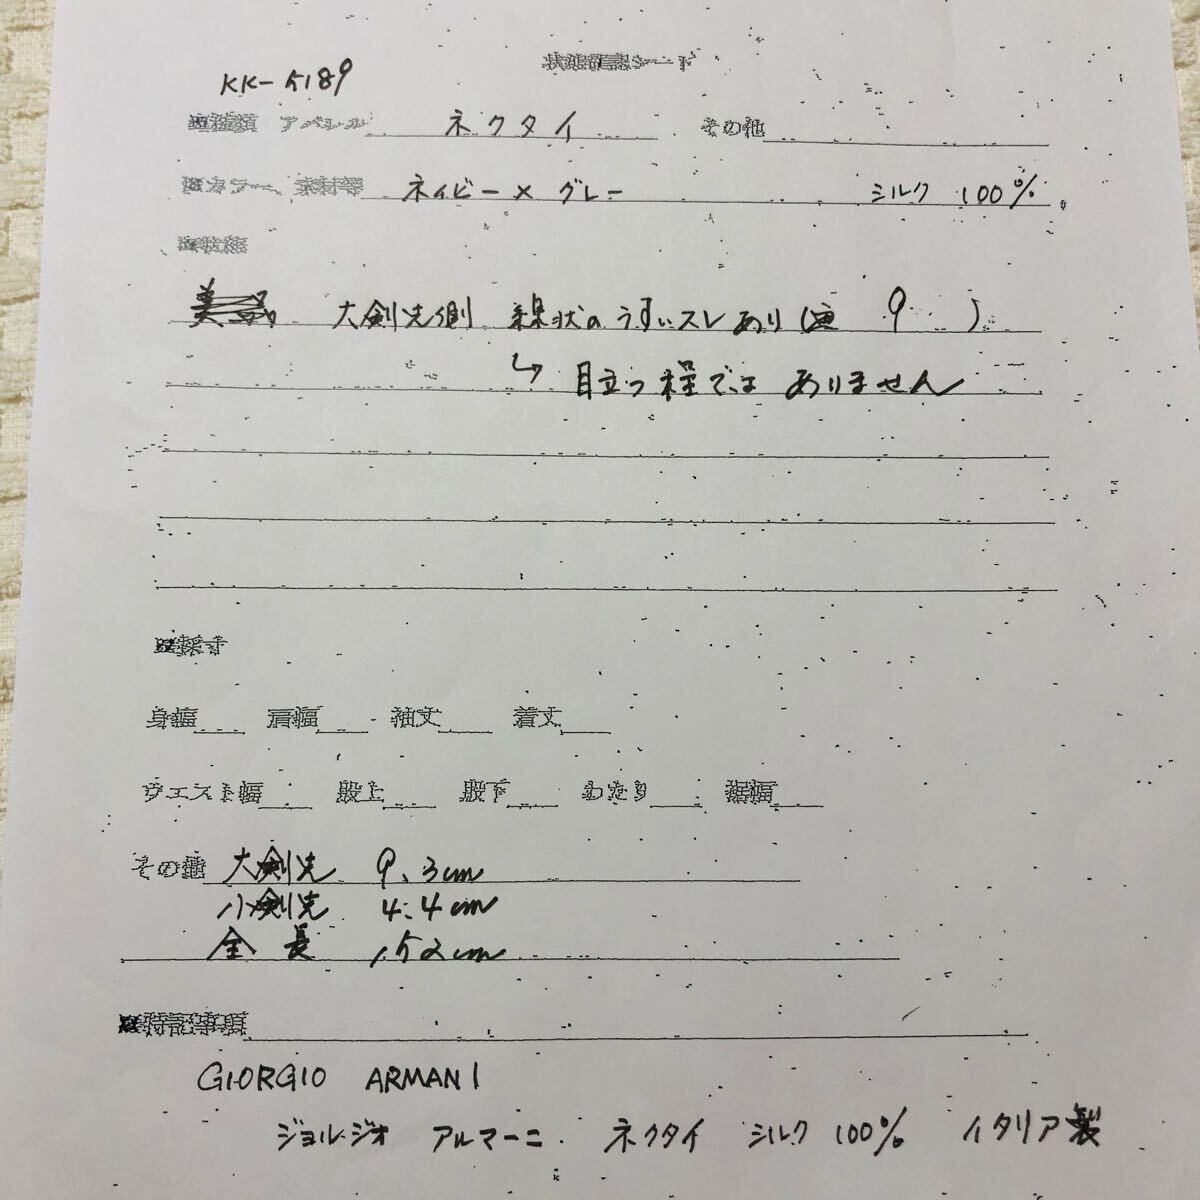 状態確認シート
KK-5189
■種類 アパレル ネクタイ その他
■カラー、素材等 ネイビー×グレー シルク 100%
■状態
大剣先側 線状のうすいスレあり( 9 )
↳ 目立つ程ではありません
■採寸
身幅 肩幅 袖丈 着丈
ウエスト幅 股上 股下 わたり 裾幅
その他 大剣先 9.3cm
小剣先 4.4cm
全長 152cm
■特記事項
GIORGIO ARMANI
ジョルジオ アルマーニ ネクタイ シルク 100% イタリア製